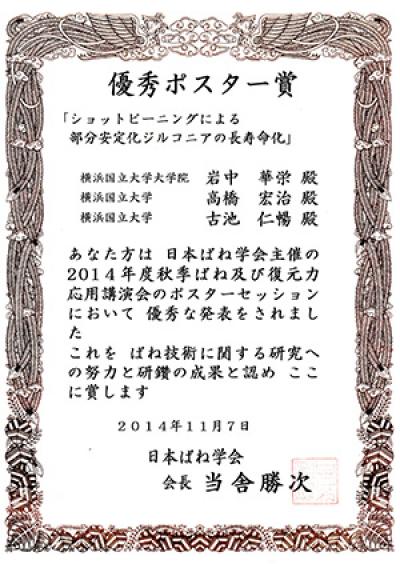 優秀ポスター賞
「ショットピーニングによる
部分安定化ジルコニアの長寿命化」
横浜国立大学大学院 岩中 華栄 殿
横浜国立大学 高橋 宏治 殿
横浜国立大学 古池 仁暢 殿
あなた方は 日本ばね学会主催の
2014年度秋季ばね及び復元力
応用講演会のポスターセッション
において 優秀な発表をされまし
た
これを ばね技術に関する研究へ
の努力と研鑽の成果と認め ここ
に賞します
2014年11月7日
日本ばね学会
会長 当舎勝次